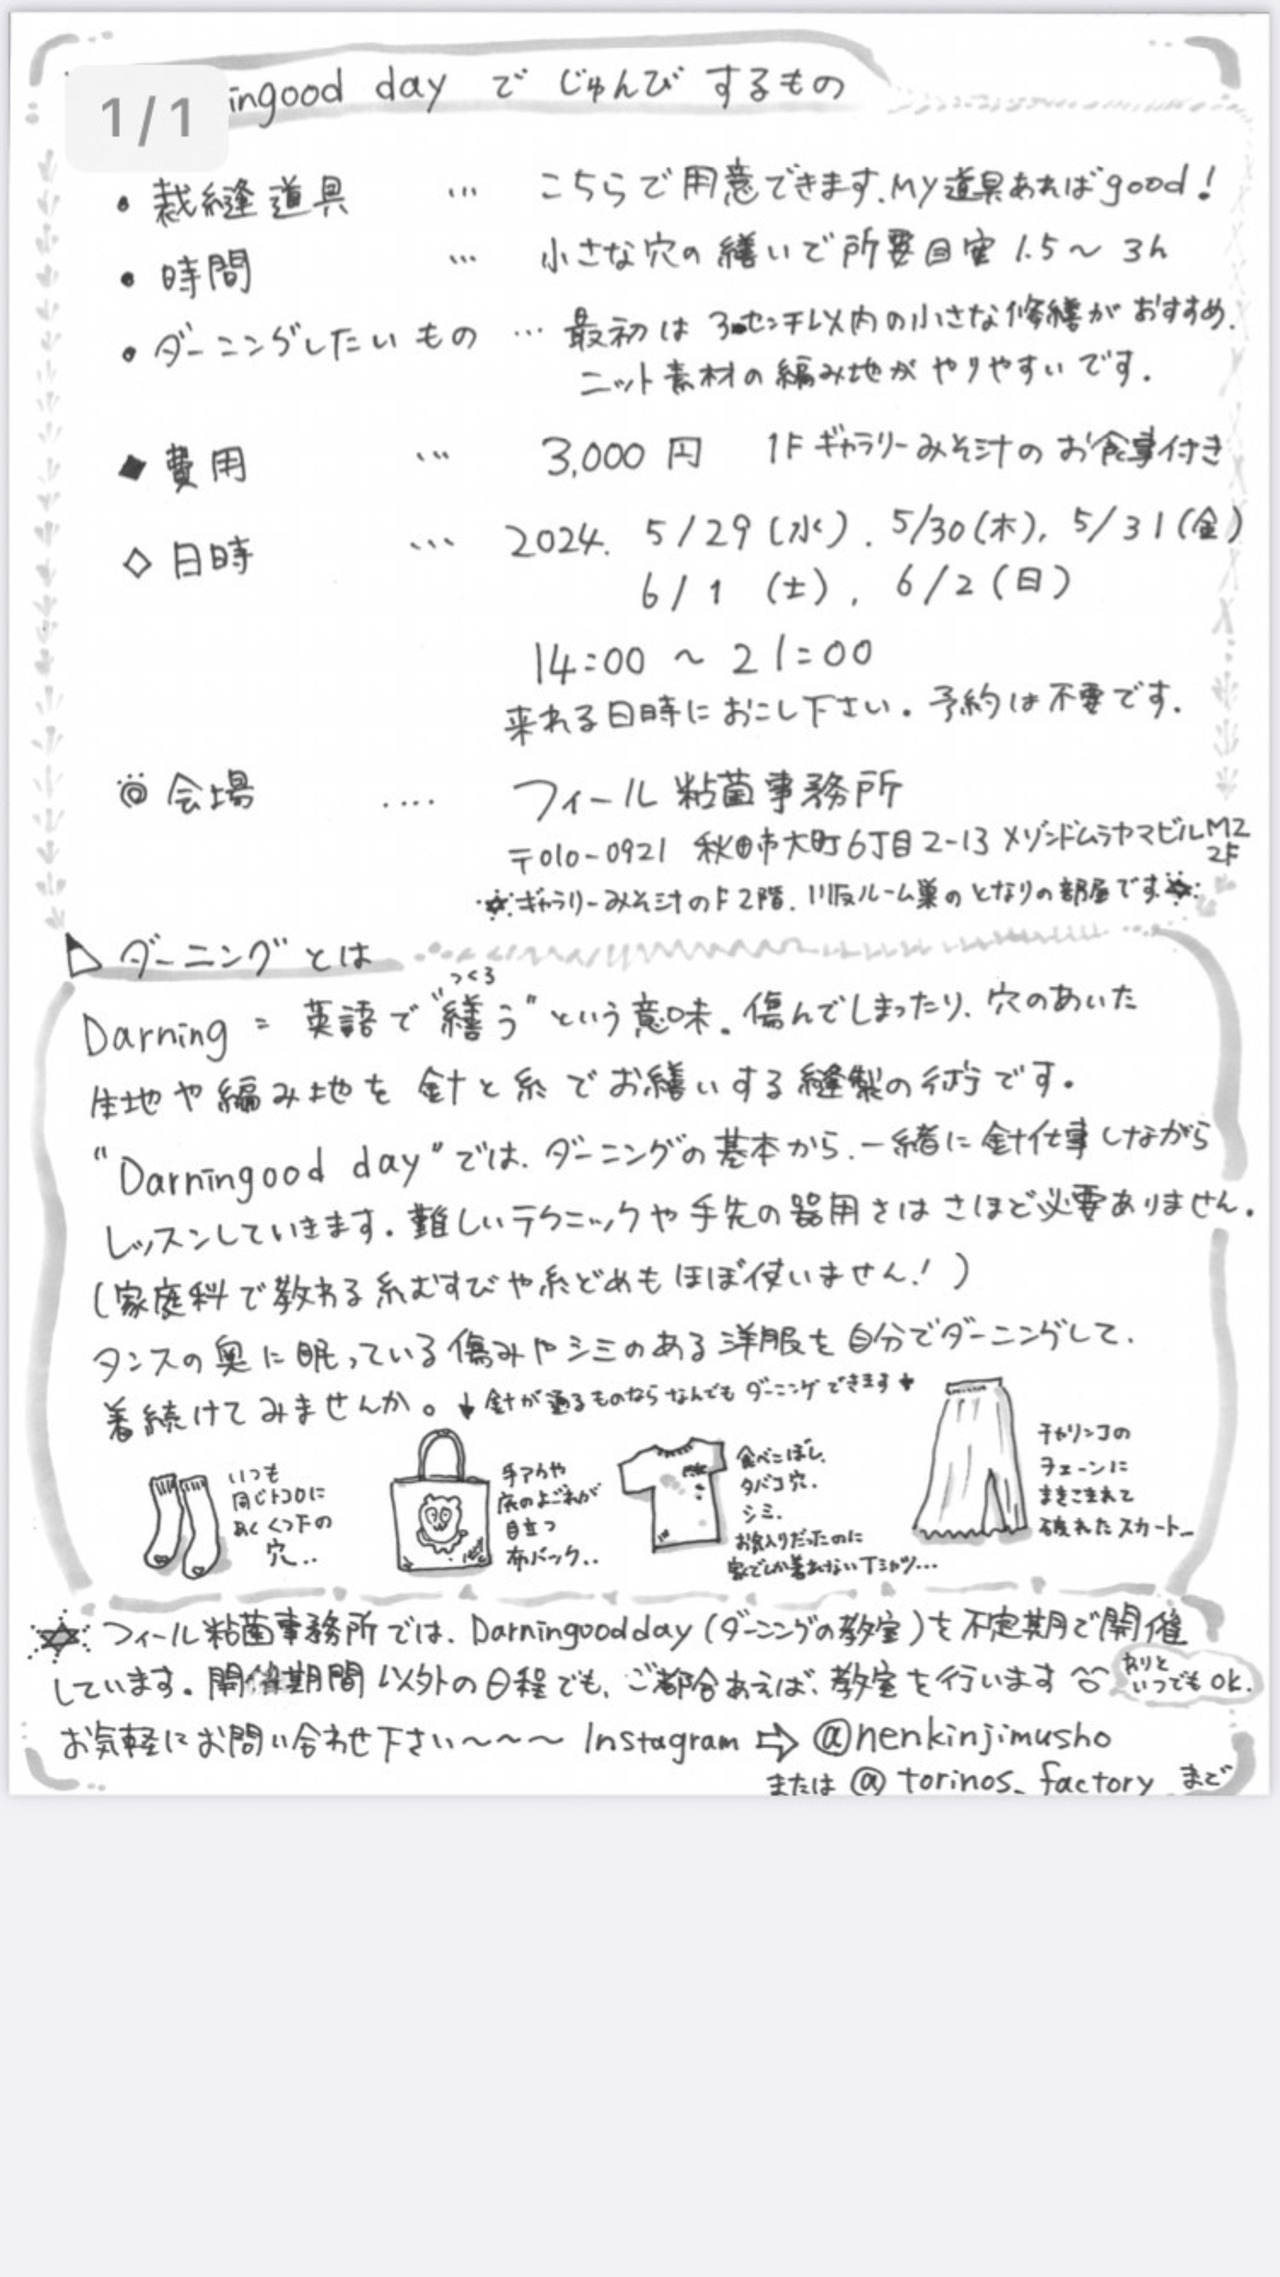 1/1
ingood day で じゅんび するもの
• 裁縫道具 … こちらで用意できます.MY道具あればgood!
• 時間 … 小さな穴の繕いで所要目安 1.5～3h
• ダーニングしたいもの … 最初は 3センチ以内の小さな修繕が おすすめ.
ニット素材の編み地が やりやすいです.
◆ 費用 … 3,000円 1Fギャラリーみそ汁の お食事付き
◇ 日時 … 2024. 5/29(水). 5/30(木), 5/31(金)
6/1 (土), 6/2(日)
14:00 ～ 21:00
来れる日時に おこし下さい。予約は不要です.
◎ 会場 .... フィール 粘菌事務所
〒010-0921 秋田市大町6丁目2-13 メゾンドムラヤマビルM2
2F
☆ギャラリーみそ汁の 2階. 川反ルーム巣の となりの部屋です☆
ダーニングとは
つくろ
Darning = 英語で"繕う"という意味。傷んでしまったり、穴のあいた
生地や編み地を 針と糸でお繕いする縫製の術です。
"Darningood day"では、ダーニングの基本から、一緒に針仕事しながら
レッスンしていきます。難しいテクニックや手先の器用さは さほど必要ありません.
(家庭科で教わる糸むすびや糸どめもほぼ使いません!)
タンスの奥に眠っている傷みやシミのある洋服を自分でダーニングして.
着続けてみませんか。↓針が通るものならなんでも ダーニングできます↓
いつも
同じトコロに
あく くつ下の
穴..
手アカや
底のよごれが
目立つ
布バック..
食べこぼし、
タバコ穴.
シミ.
お気入りだったのに
家でしか着れないTシャツ...
チャリンコの
チェーンに
まきこまれて
破れた スカート_
☆ フィール粘菌事務所では、Darningoodday(ダーニングの教室)を不定期で開催
しています。開催期間 以外の日程でも、ご都合あえば、教室を行います
わりと
いつでもOK.
お気軽にお問い合わせ下さい～～～ Instagram ⇨ @nenkinjimusho
または @torinos_factory まで